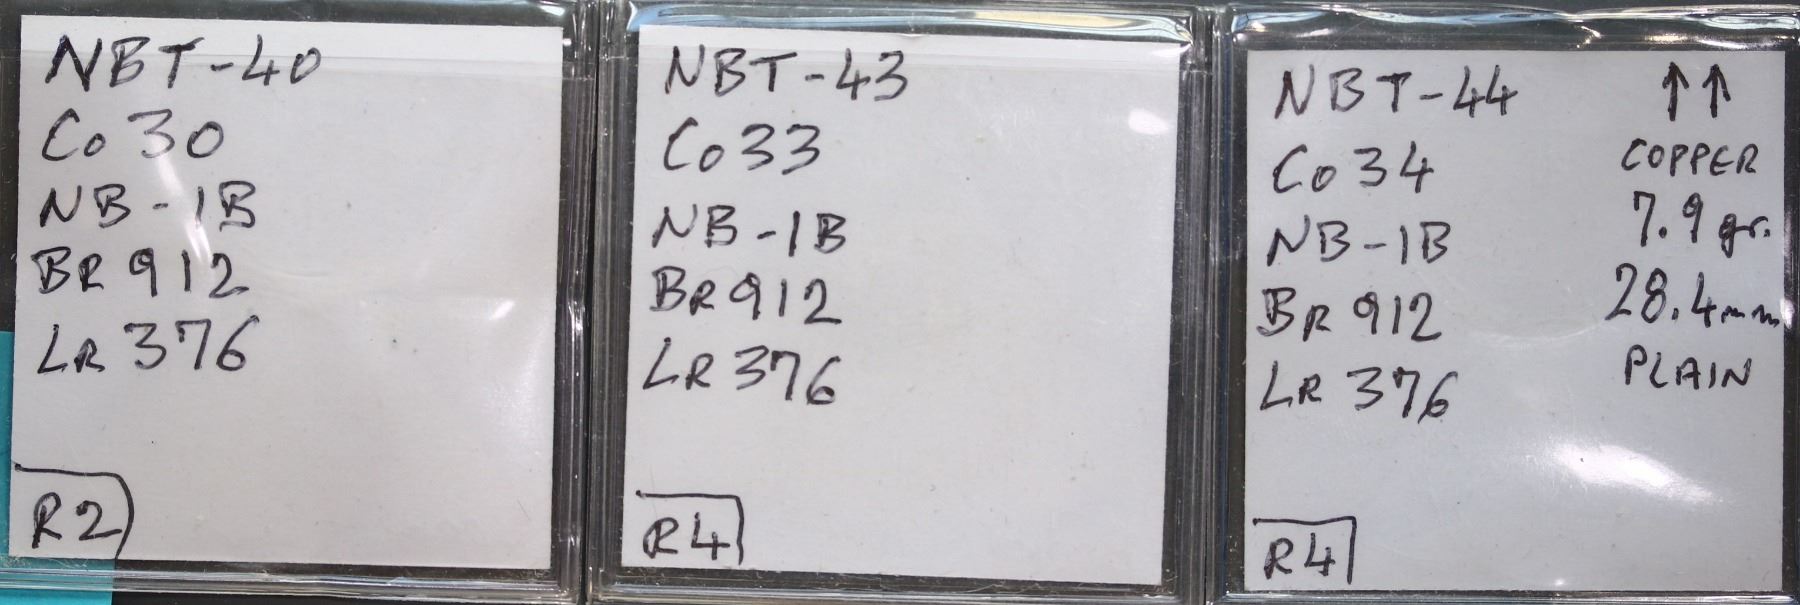 NBT-40
Co 30
NB-1B
BR 912
LR 376
R2
NBT-43
Co 33
NB-1B
BR 912
LR 376
R4
NBT-44
Co 34
NB-1B
BR 912
LR 376
R4
↑↑
COPPER
7.9 gr.
28.4mm
PLAIN